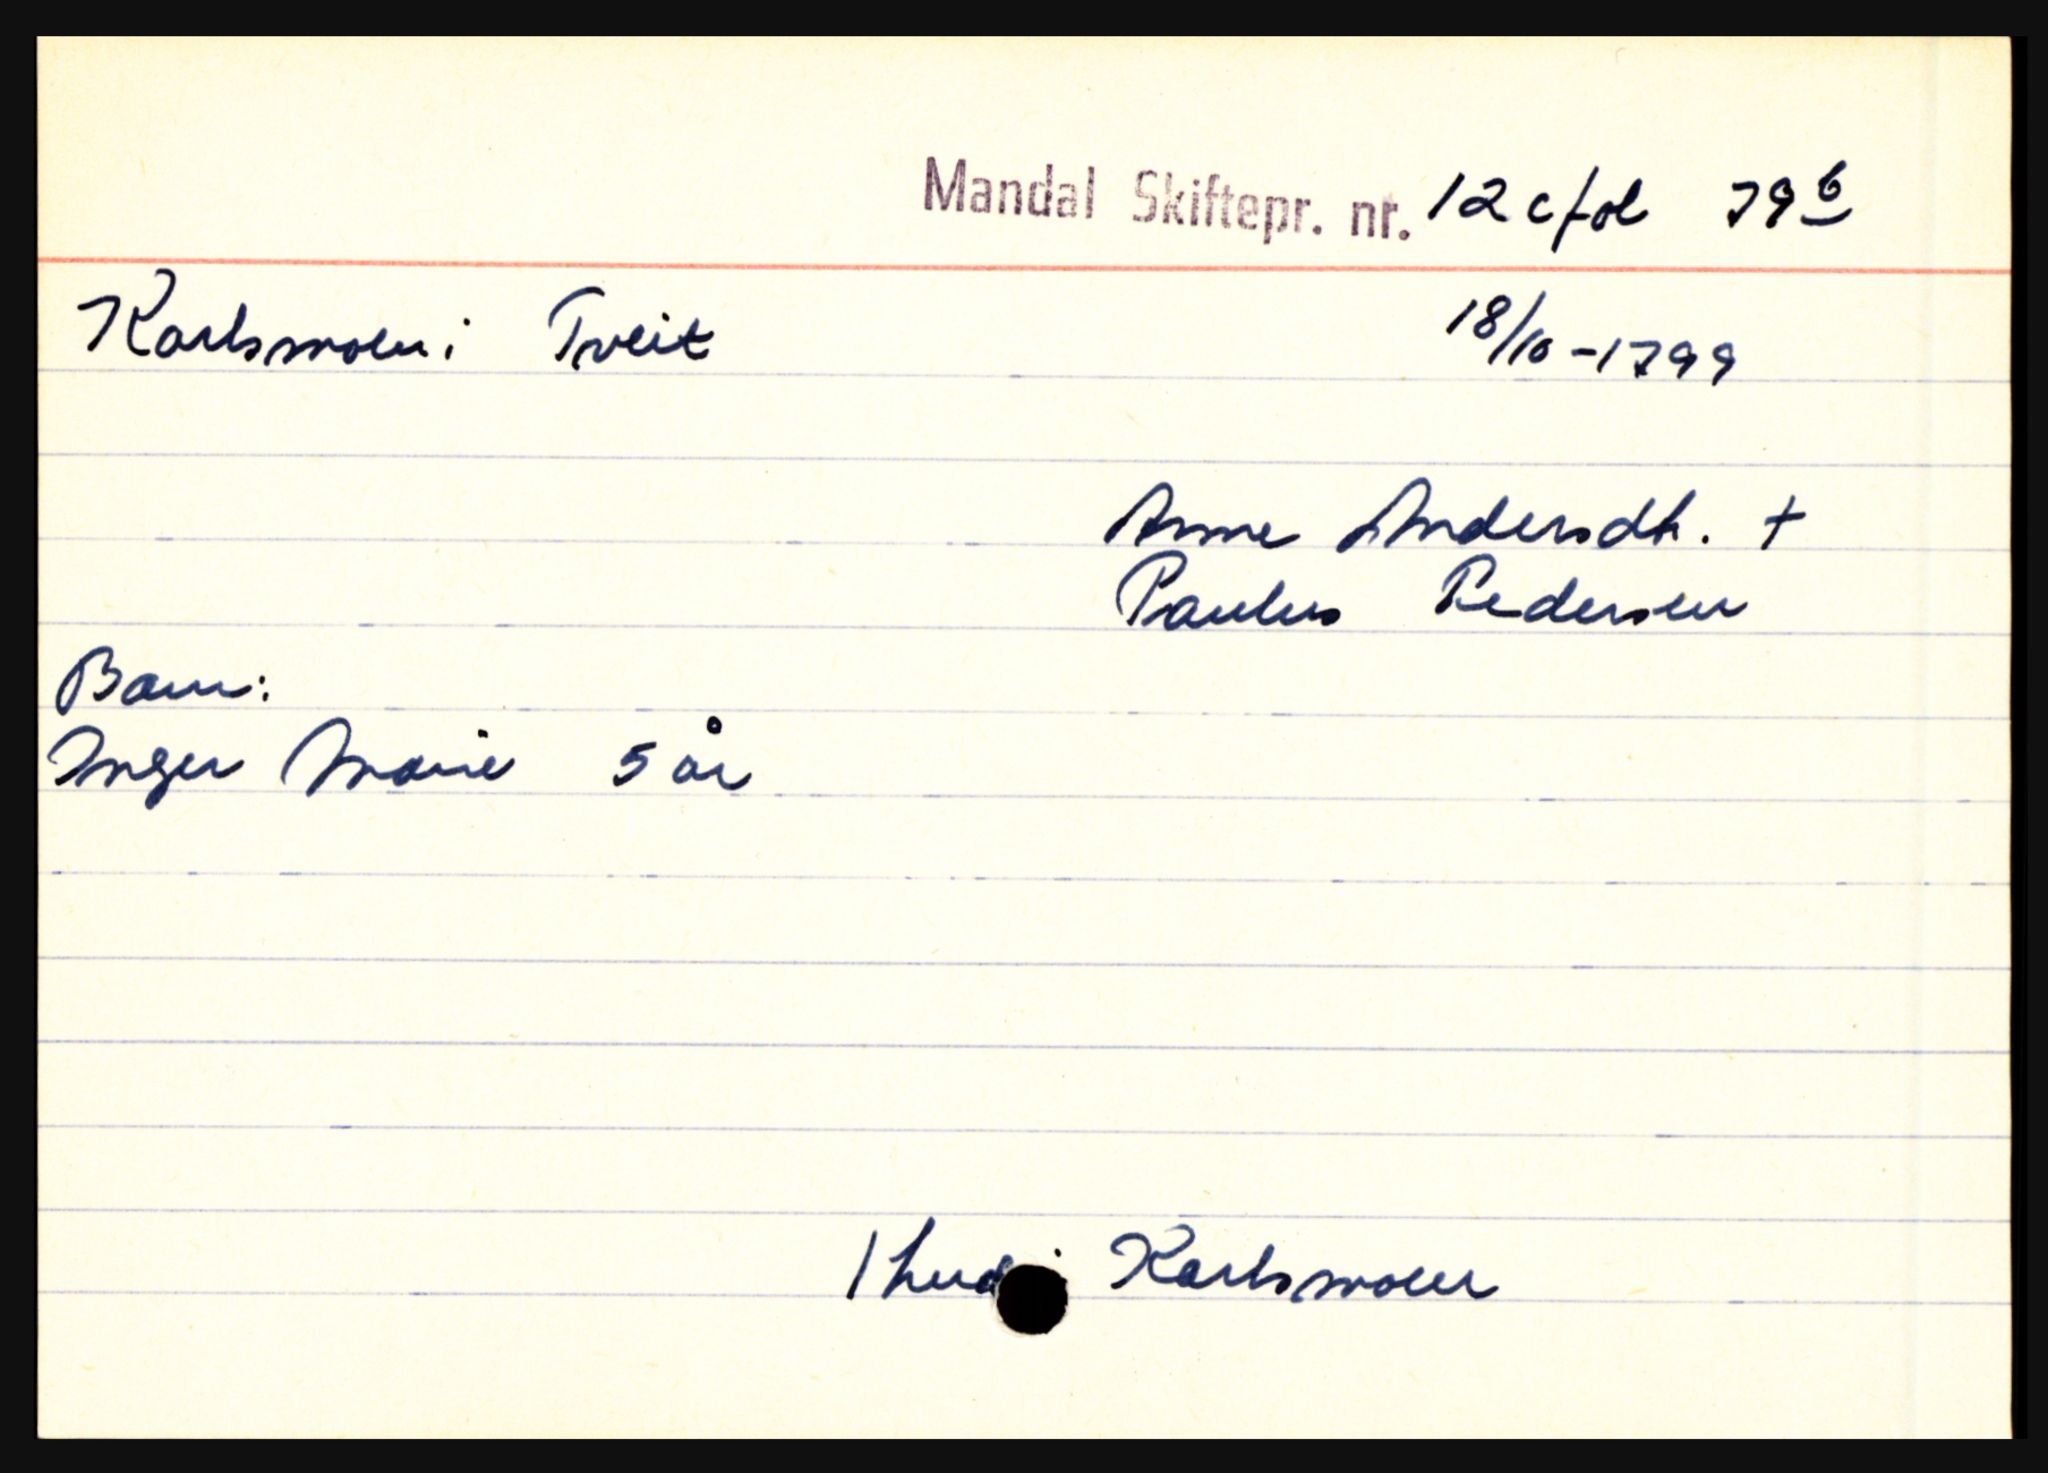 Mandal Skiftepr. nr. 12 c fol 79 b
Karlsmoen i Tveit 18/10-1799
Anne Andersdh. +
Paulus Pedersen
Barn:
Inger Marie 5 år
1 hud i Karlsmoen